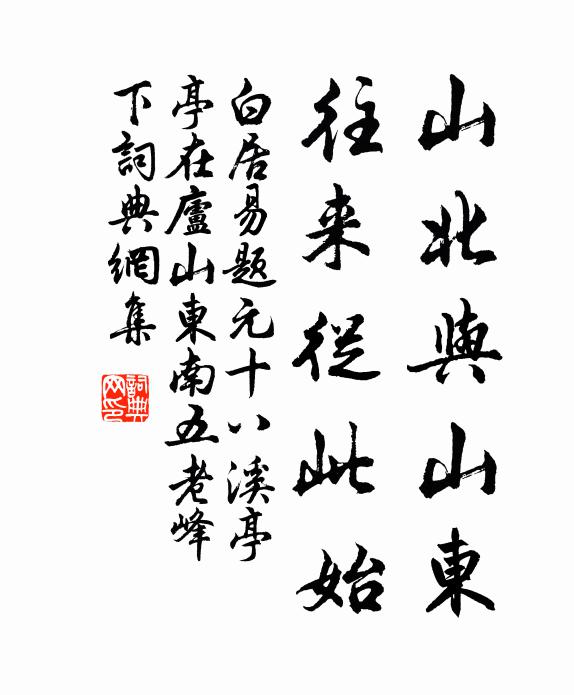 山北與山東
往来從此始
白居易題元十八溪亭
亭在廬山東南五老峰
下詞典網集
詞典网印